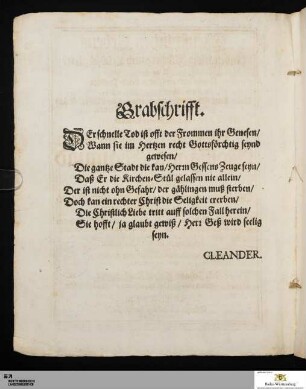 Grabschrifft.
DEr schnelle Tod ist offt der Frommen ihr Genesen/
Wann sie im Hertzen recht Gottsförchtig seynd
gewesen/
Die gantze Stadt die kan/ Herrn Gessens Zeuge seyn/
Daß Er die Kirchen-Stül gelassen nie allein/
Der ist nicht ohn Gefahr/ der gählingen muß sterben/
Doch kan ein rechter Christ die Seligkeit ererben/
Die Christlich Liebe tritt auff solchen Fall herein/
Sie hofft/ ja glaubt gewiß/ Herr Geß wird seelig
seyn.
CLEANDER.
Baden-Württemberg